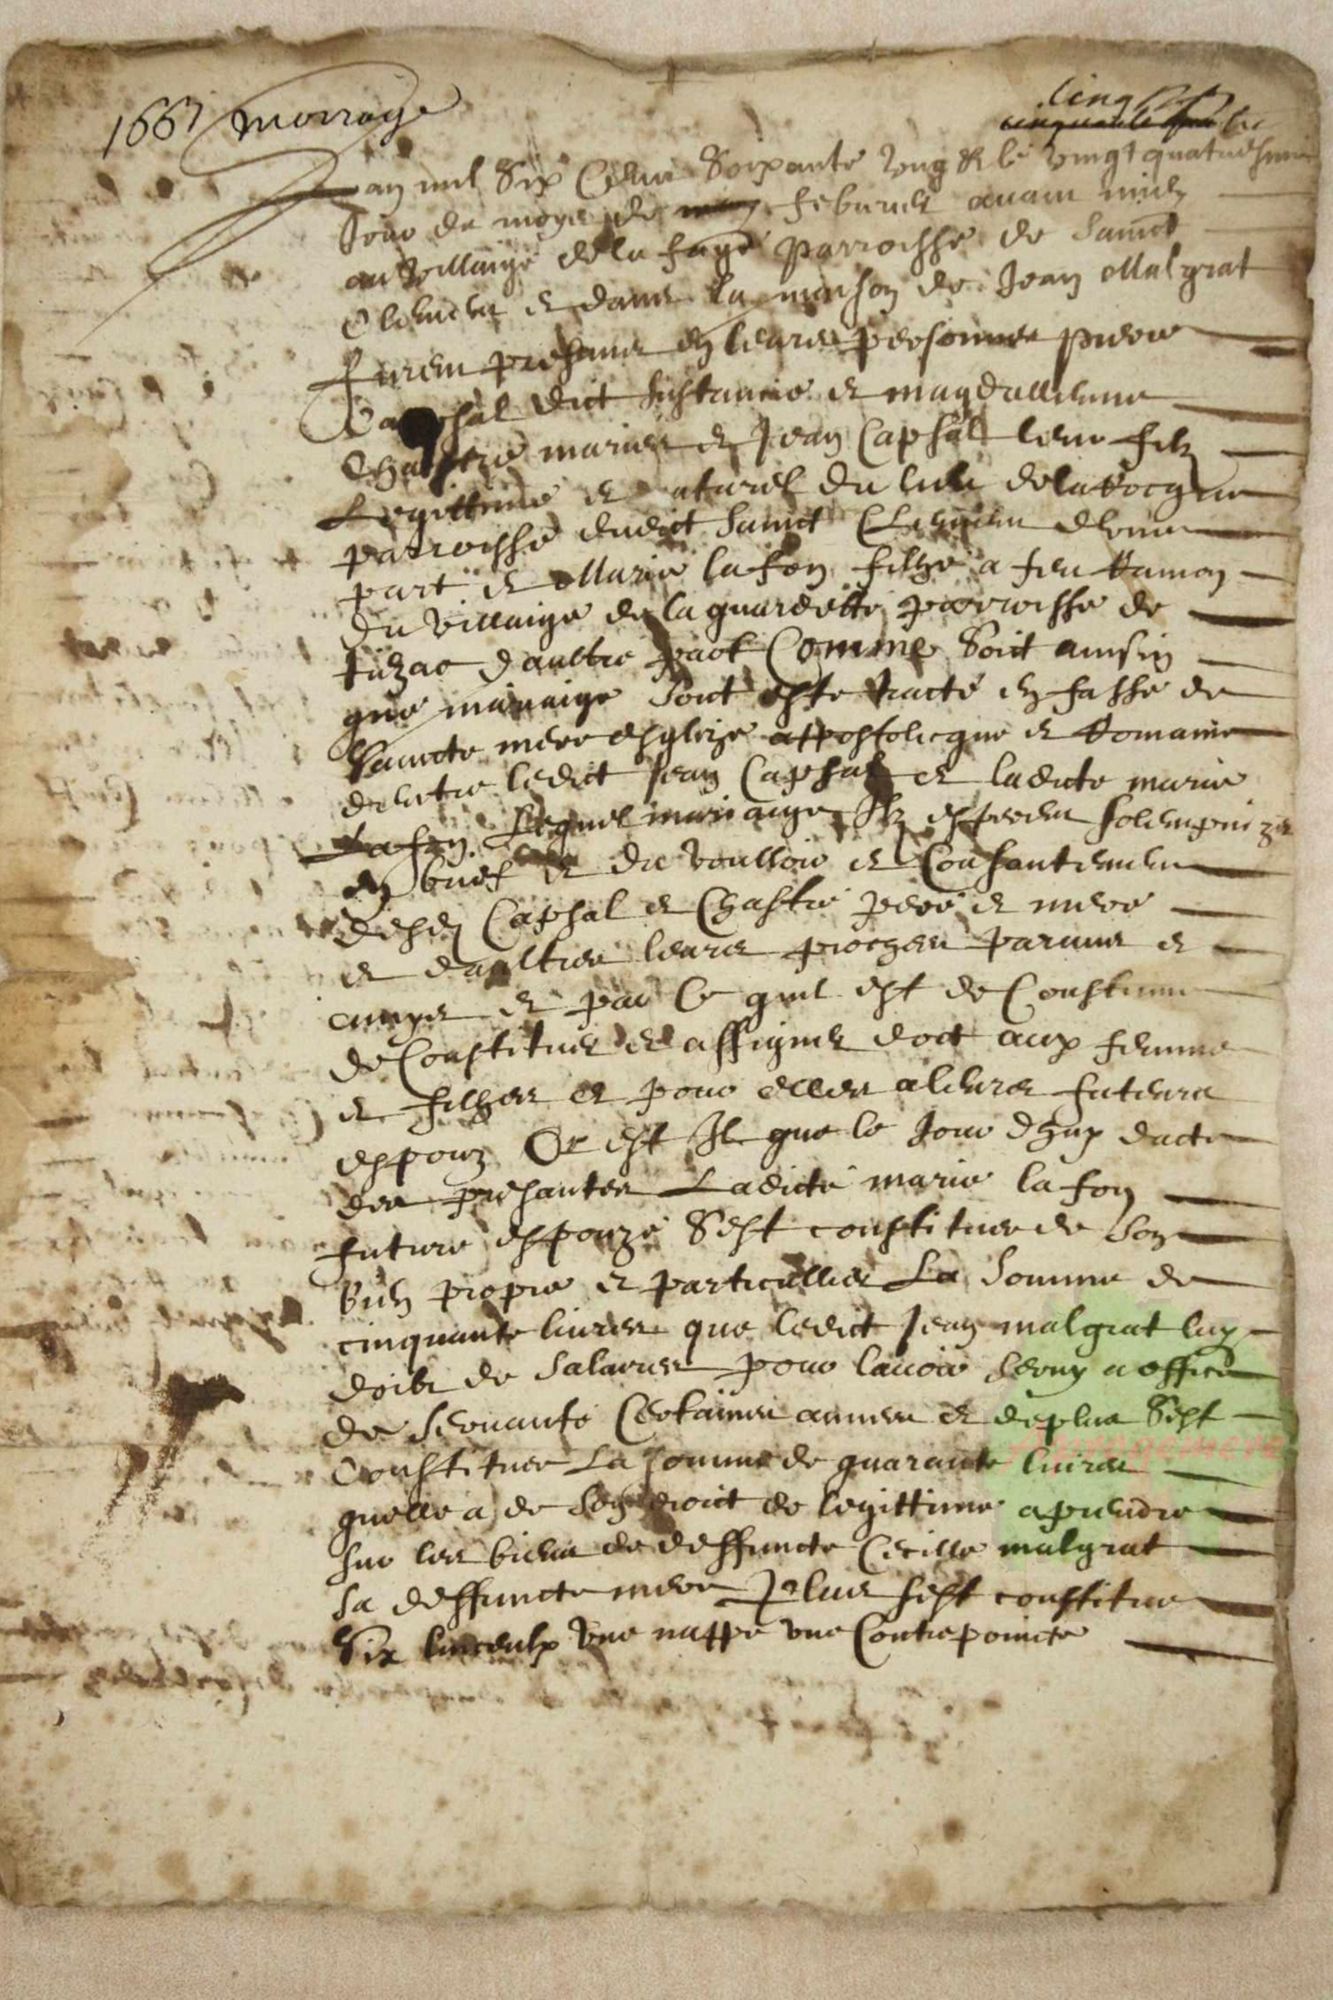 1661 mariage
cinq
Lan mil six cens soixante ung & le vingt quatriesme
jour du moys de febvrier avant midy
au villaige de la fage parroisse de sainct
Clement et dans la maison de Jean Malgrat
furent presens en leurs personnes pierre
Capsal dict et magdallenne
Chastre mariés et Jean Capsal leur filz
Legittime et naturel du lieu de
parroisse dudict sainct Clement dune
part et Marie lafon filhe a feu Ramon
du villaige de la guardette parroisse de
tuzac daultre part Comme soit ainsin
que mariaige soit este tracté en fasse de
saincte mere esglize appostolicque et Romaine
dentre ledict Jean Capsal et ladicte marie
Lafon Lequel mariaige ilz esperent solempnizer
en brief et du voulloir et Consantement
desd Capsal et Chastre pere et mere
et daultres leurs proches parans et
amys et par ce quil est de Coustume
de Constituer et assigner dot aux femmes
et filhes et pour elles a leurs futeurs
espouz Or est Il que le jour dhuy dacte
des presantes Ladicte marie lafon
future espouze sest constituee de son
bien propre et particullier La somme de
cinquante livres que ledict Jean malgrat luy
doibt de salaires pour lavoir servy a office
de servante Certaines annees et deplus sest
Constituee La somme de quarante livres
quelle a de son droict de legittime a prendre
sur les biens de deffuncte Cecille malgrat
sa deffuncte mere Plus sest constitue
six linceulx une nappe une Contrepoincte